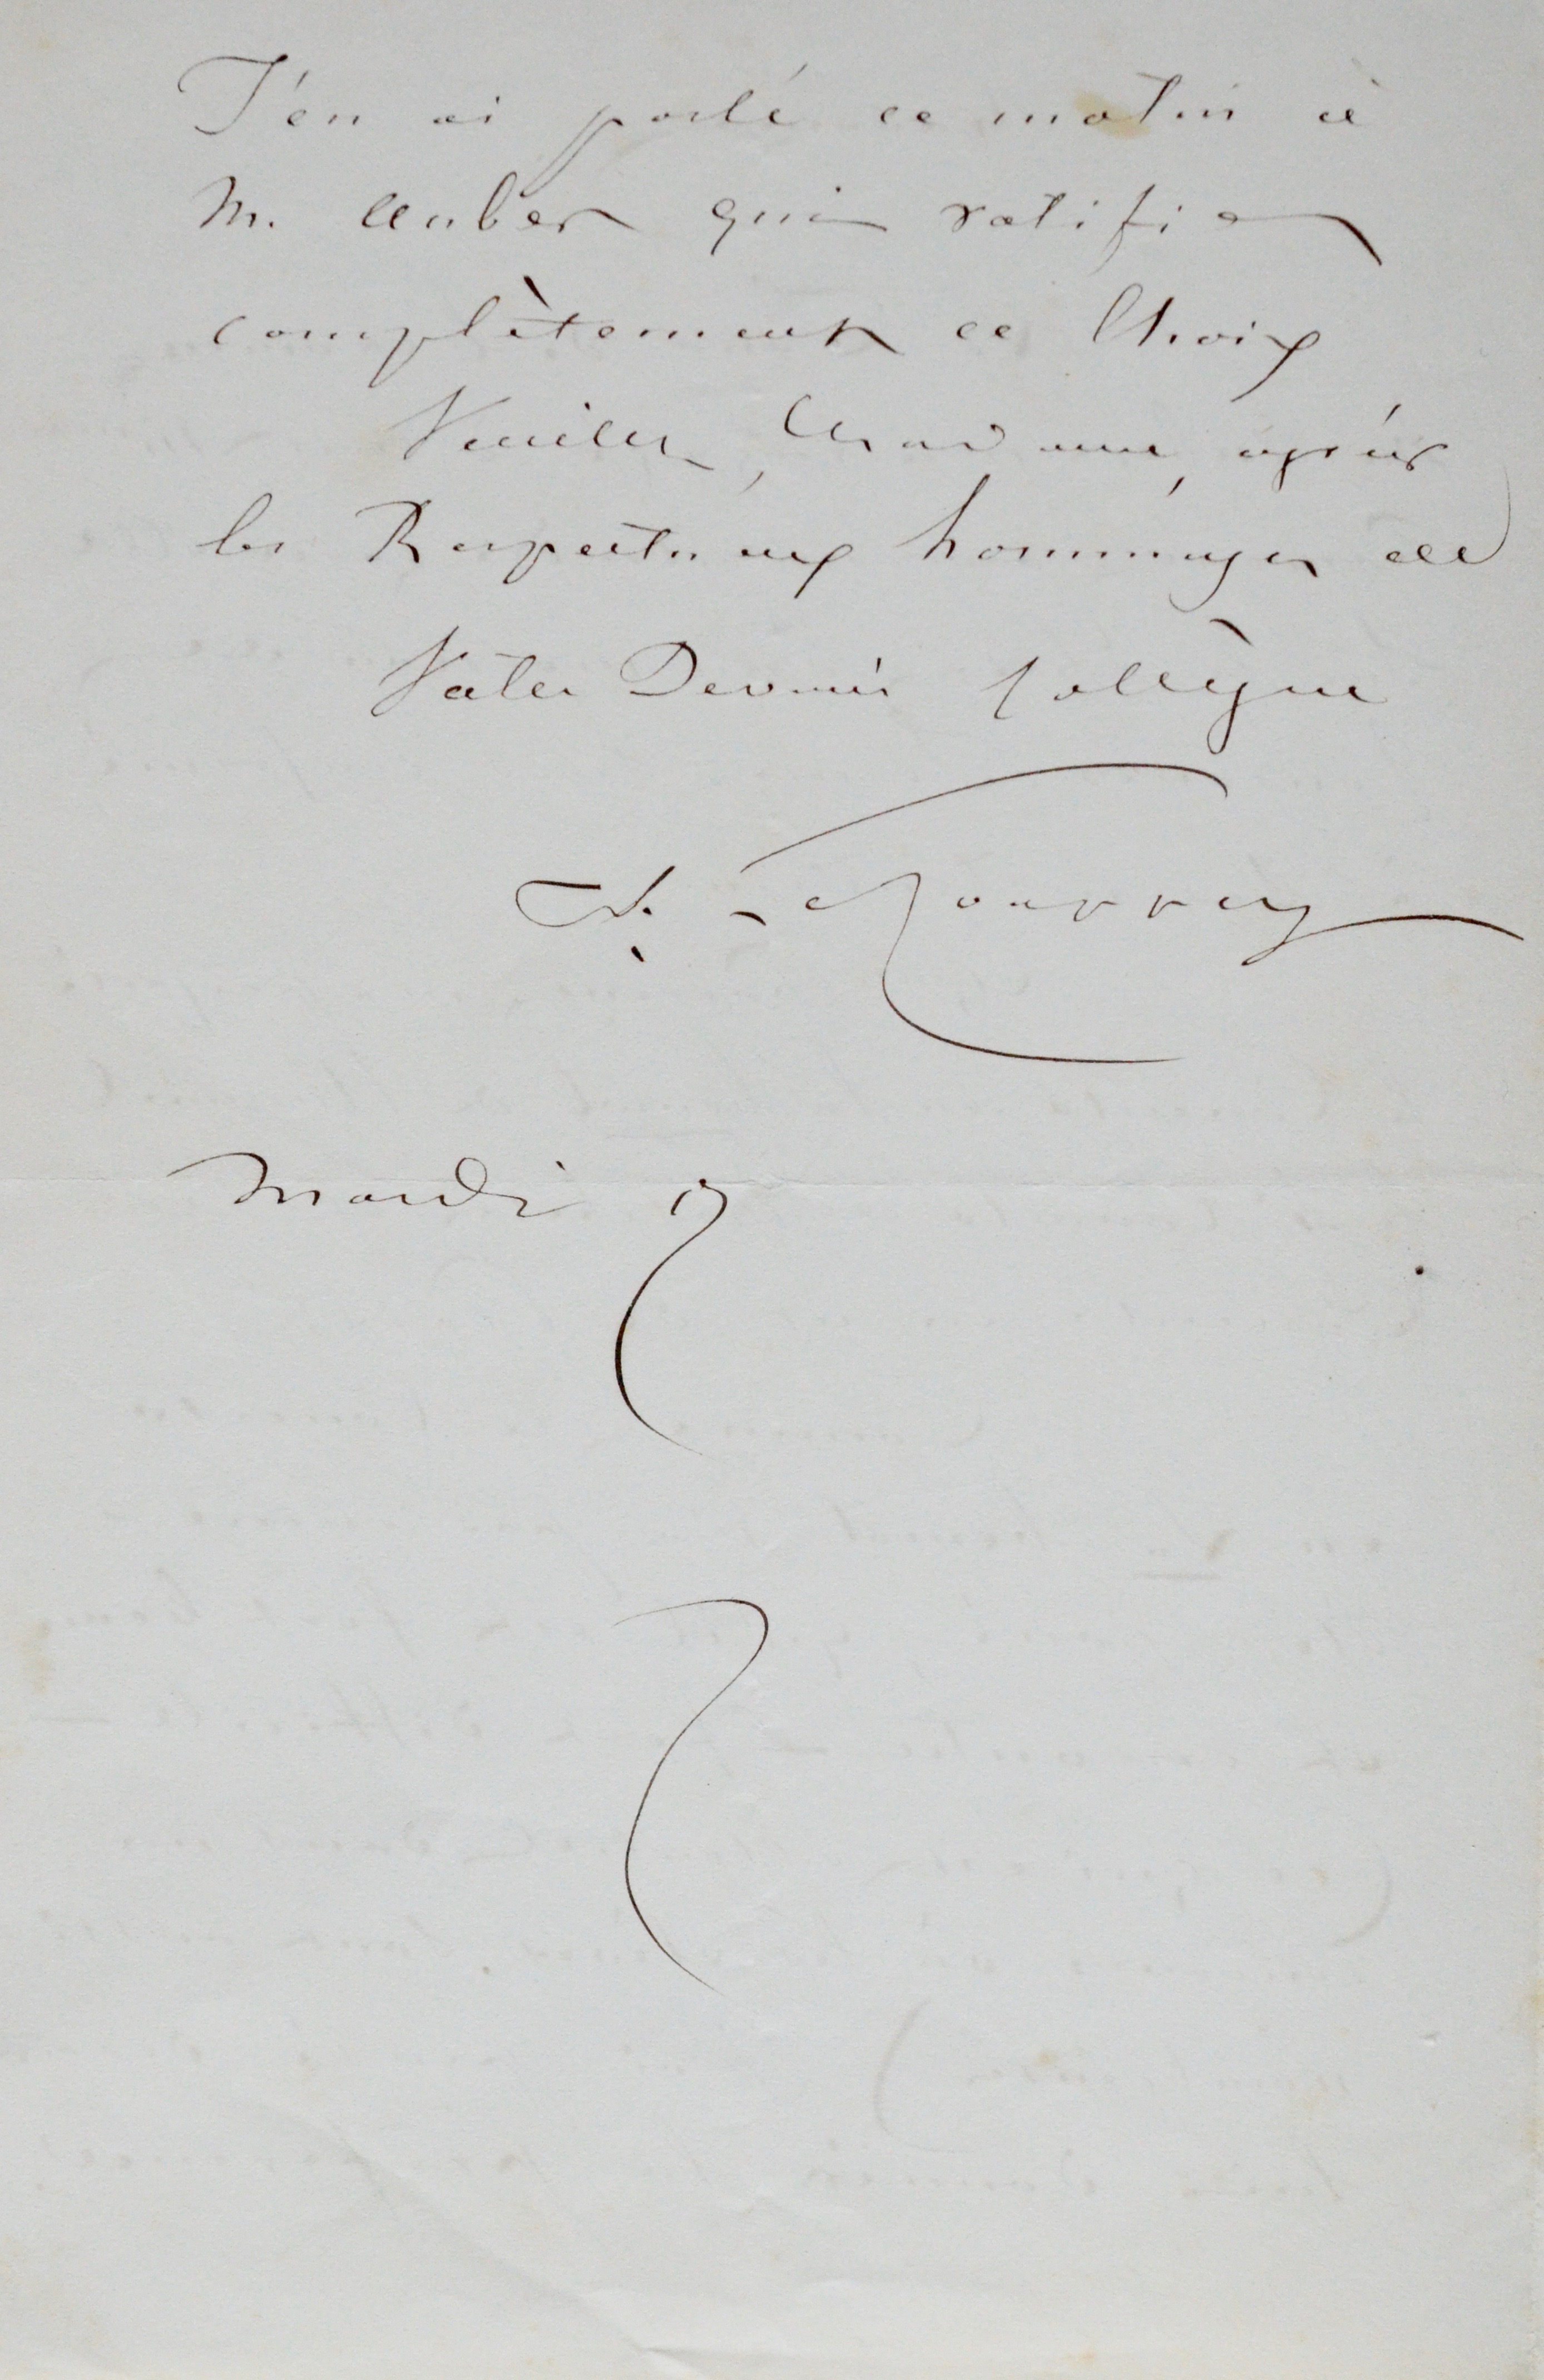 J'en ai parlé ce matin à
M. Auber qui ratifie
complètement ce Choix
Veuillez, Madame, agréer
les Respectueux hommages de
Votre Dévoué Collègue
Mardi